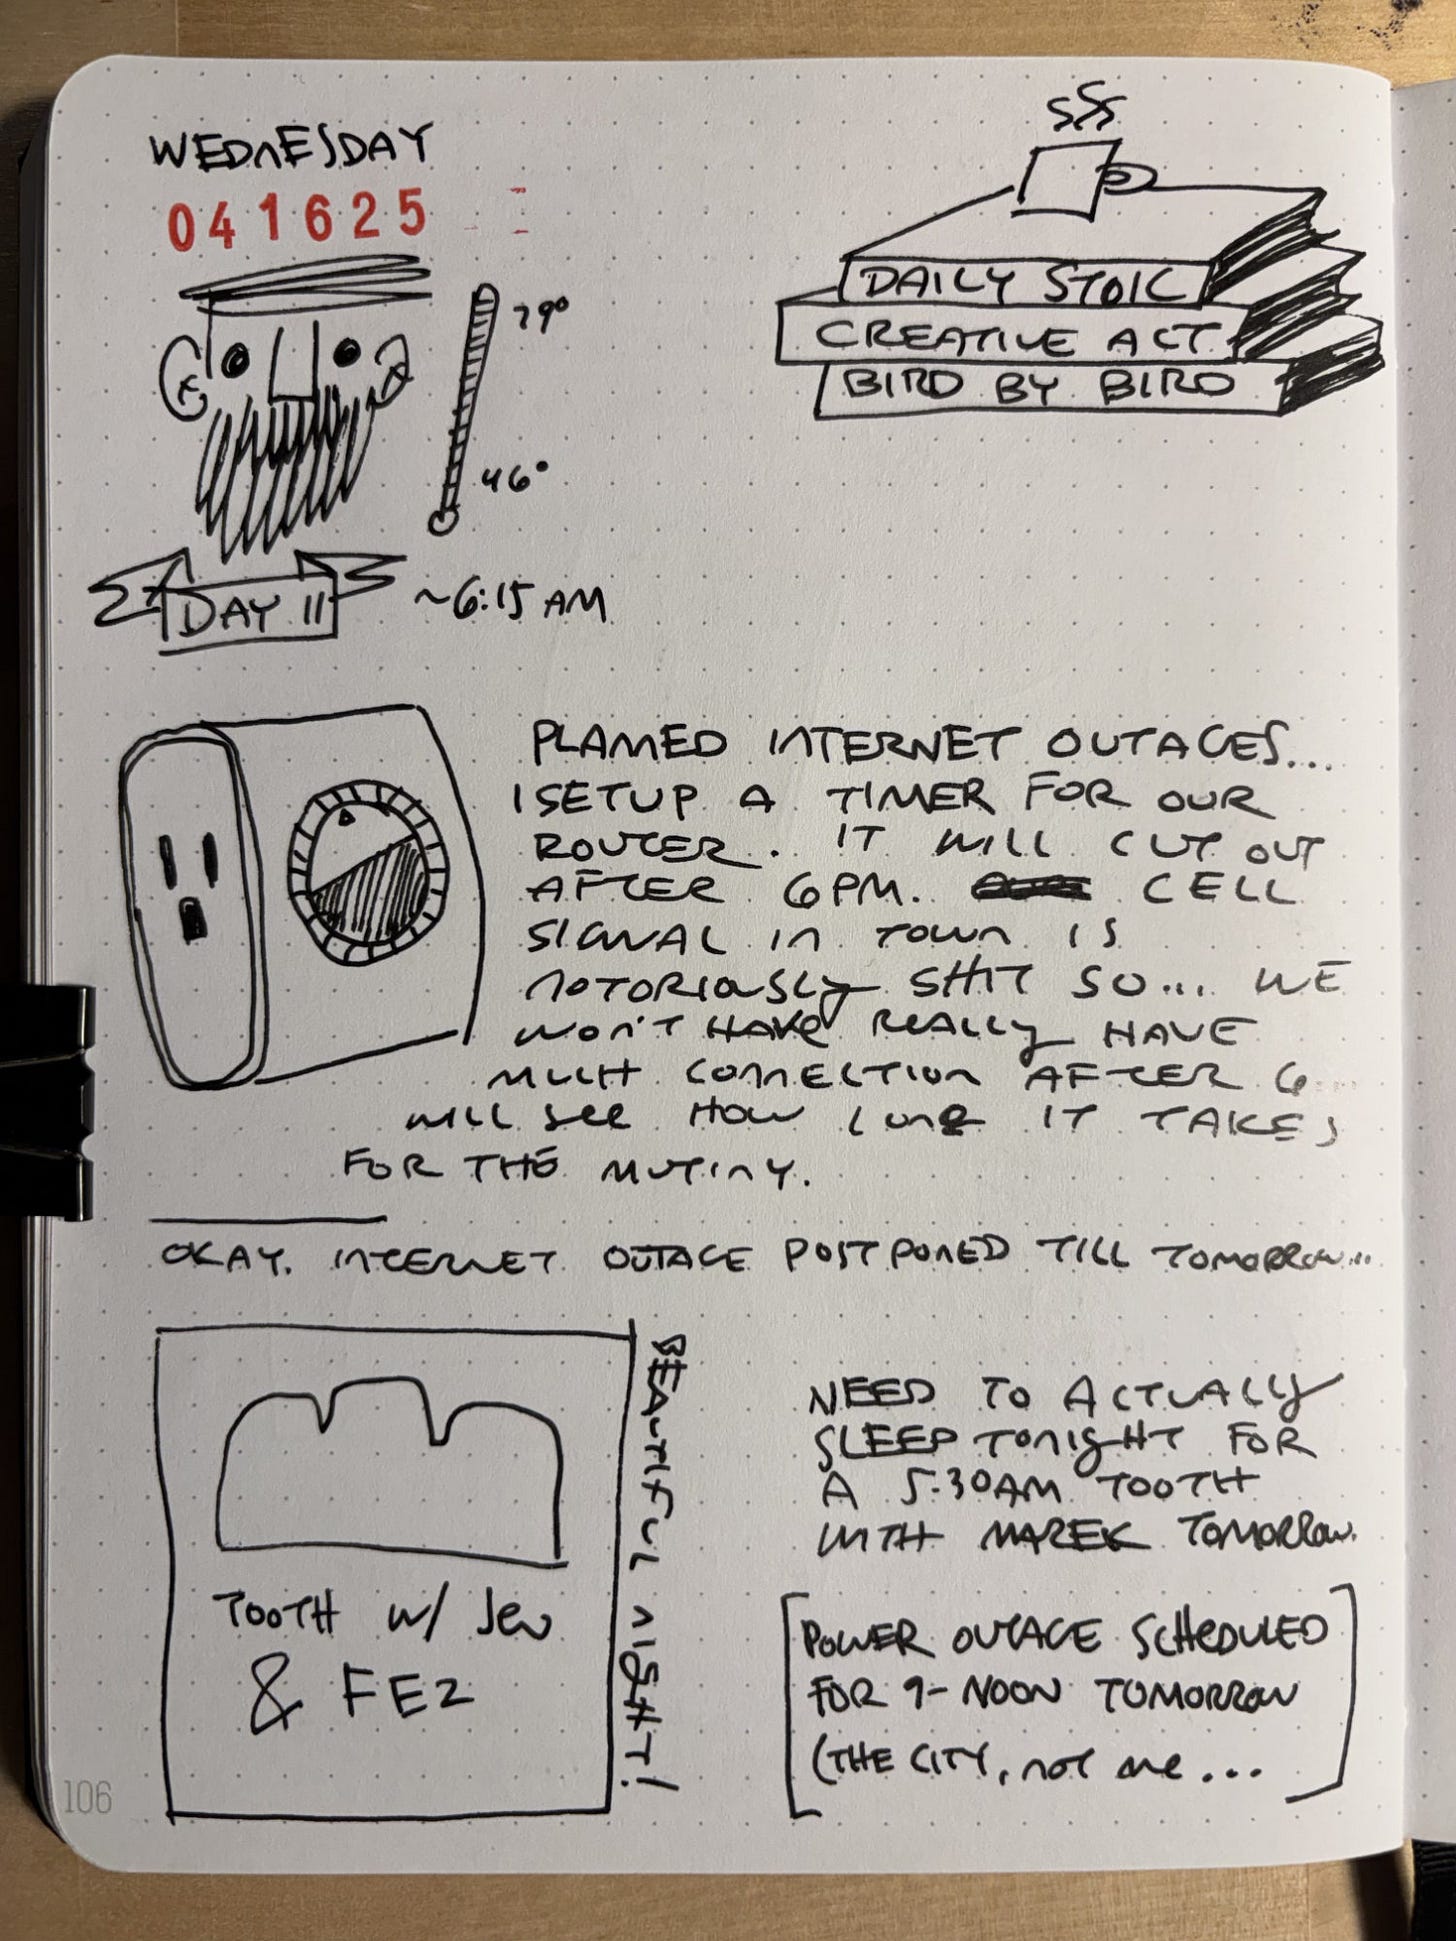 WEDNESDAY
041625
79°
46°
DAY 11
~6:15 AM
DAILY STOIC
CREATIVE ACT
BIRD BY BIRD
PLANNED INTERNET OUTAGES...
I SETUP A TIMER FOR OUR
ROUTER. IT WILL CUT OUT
AFTER 6PM. CELL
SIGNAL IN TOWN IS
NOTORIOUSLY SHIT SO... WE
WON'T HAVE REALLY HAVE
MUCH CONNECTION AFTER 6...
WILL SEE HOW LONG IT TAKES
FOR THE MUTINY.
OKAY. INTERNET OUTAGE POSTPONED TILL TOMORROW...
TOOTH W/ JEN
& FEZ
BEAUTIFUL NIGHT!
NEED TO ACTUALLY
SLEEP TONIGHT FOR
A 5:30AM TOOTH
WITH MAREK TOMORROW.
[POWER OUTAGE SCHEDULED
FOR 9-NOON TOMORROW
(THE CITY, NOT ME...]
106